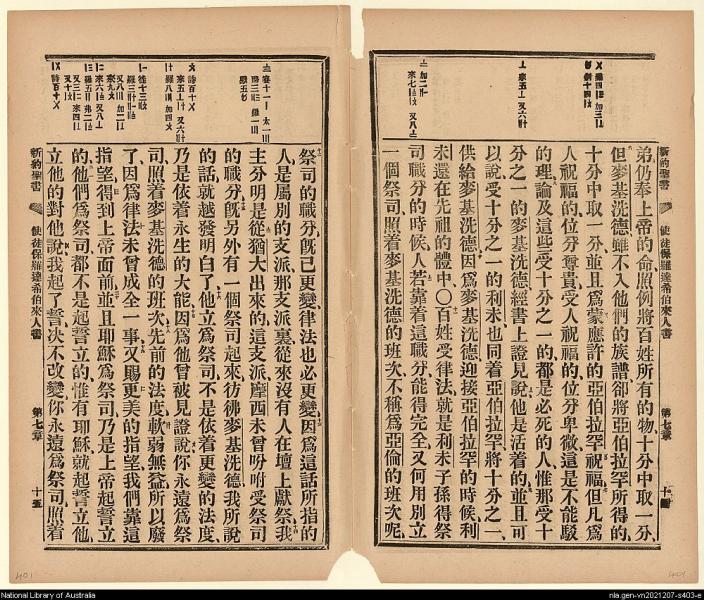 新約聖書
使徒保羅達希伯來人書
第七章
弟仍奉上帝的命照例將百姓所有的物十分中取一分
但麥基洗德雖不入他們的族譜卻將亞伯拉罕所得的
十分中取一分並且爲蒙應許的亞伯拉罕祝福但凡爲
人祝福的位分尊貴受人祝福的位分卑微這是不能駁
的理論及這些受十分之一的都是必死的人惟那受十
分之一的麥基洗德經書上證見說他是活着的並且可
以說受十分之一的利未也同着亞伯拉罕將十分之一
供給麥基洗德因爲麥基洗德迎接亞伯拉罕的時候利
未還在先祖的體中〇百姓受律法就是利未子孫得祭
司職分的時候人若靠着這職分能得完全又何用別立
一個祭司照着麥基洗德的班次不稱爲亞倫的班次呢
祭司的職分旣已更變律法也必更變因爲這話所指的
人是屬別的支派那支派裏從來沒有人在壇上獻祭我
主分明是從猶大出來的這支派摩西未曾吩咐受祭司
的職分旣另外有一個祭司起來彷彿麥基洗德我所說
的話就越發明白了他立爲祭司不是依着更變的法度
乃是依着永生的大能因爲他曾被見證說你永遠爲祭
司照着麥基洗德的班次先前的法度軟弱無益所以廢
了因爲律法未曾成全一事又賜更美的指望我們靠這
指望得到上帝面前並且耶穌爲祭司乃是上帝起誓立
的他們爲祭司都不是起誓立的惟有耶穌就起誓立他
立他的對他說我起了誓決不改變你永遠爲祭司照着
新約聖書
使徒保羅達希伯來人書
第七章
十五
401
National Library of Australia
nla.gen-vn2021207-s403-e